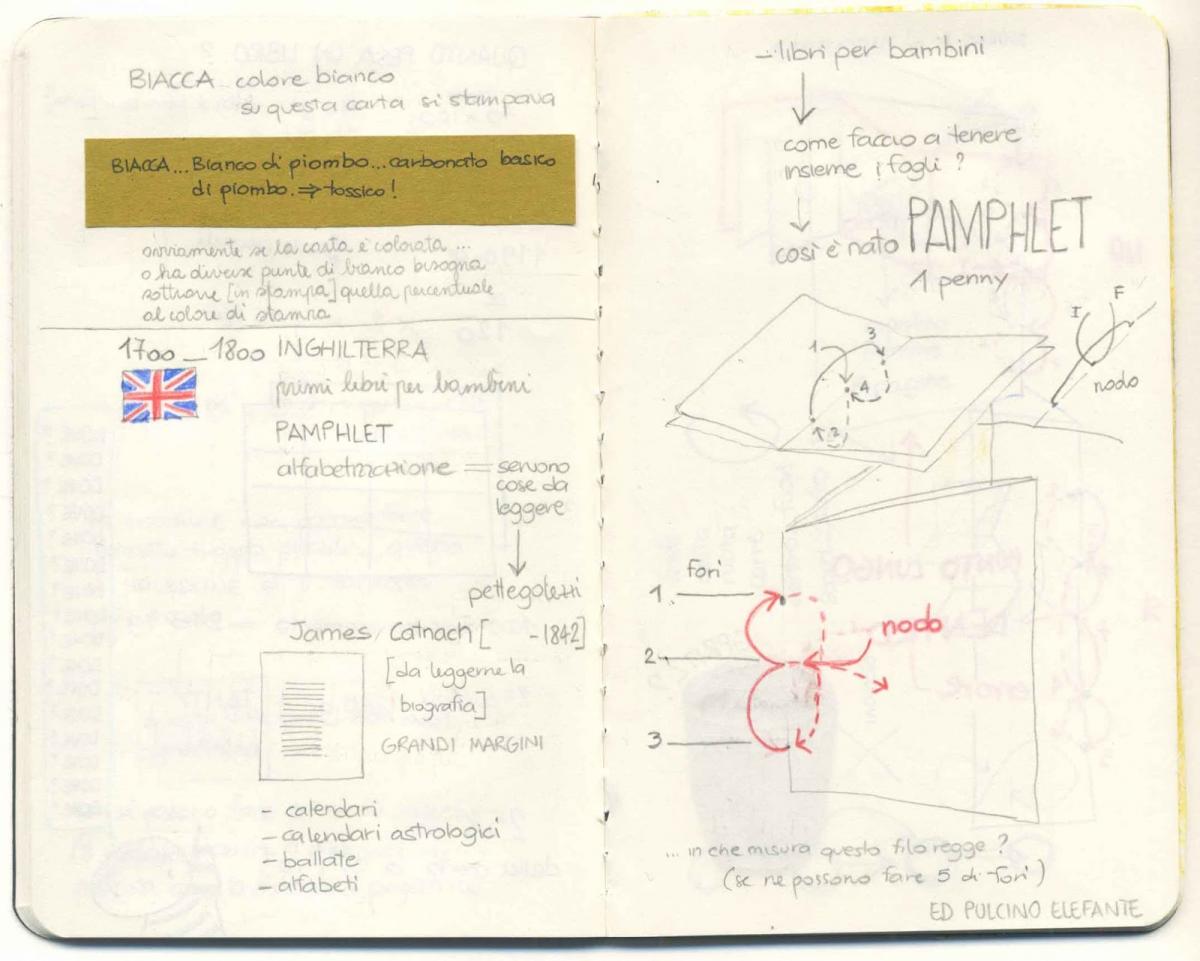 BIACCA colore bianco
su questa carta si stampava
BIACCA... Bianco di piombo... carbonato basico
di piombo. ⇒ tossico!
ovviamente se la carta è colorata ...
o ha diverse punte di bianco bisogna
sottrarre [in stampa] quella percentuale
al colore di stampa
1700_1800 INGHILTERRA
primi libri per bambini
PAMPHLET
alfabetizzazione = servono
cose da
leggere
pettegolezzi
James Catnach [ -1842]
[da leggerne la
biografia]
GRANDI MARGINI
- calendari
- calendari astrologici
- ballate
- alfabeti
- libri per bambini
come faccio a tenere
insieme i fogli?
così è nato PAMPHLET
1 penny
1 3
4
2
I F
nodo
fori
1
nodo
2
3
... in che misura questo filo regge?
(se ne possono fare 5 di fori)
ED PULCINO ELEFANTE